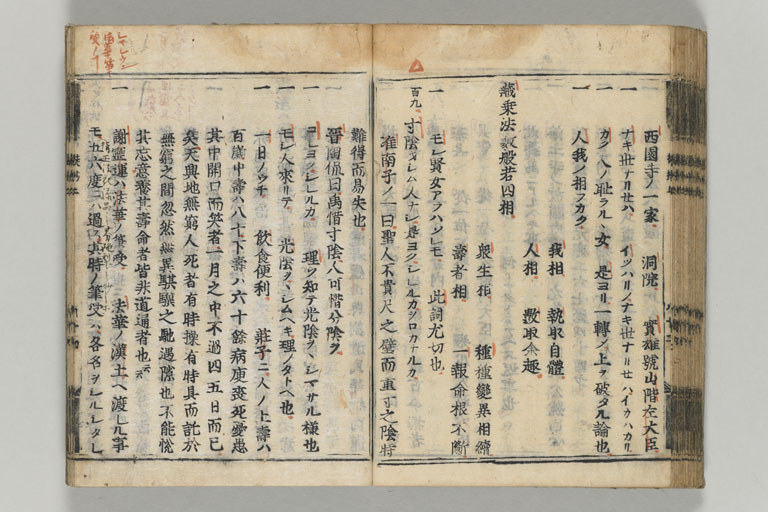 一 西園寺ノ一家 洞院 實雄號山階左大臣
一 ナキ世ナリせハ イツハリノナキ世ナリせハイカハカリ
一 カク人ノ恥ラル、女 是ヨリ一轉ノ上ヲ破タル論也
一 人我ノ相フカク
我相 執取自體
人相 數取余趣
藏乗法數般若四相
衆生相 種種變異相續
壽者相 一報命根不斷
一 モシ賢女アラハシモ 此詞尤切也
百九
一 寸陰ヲシム人ナシ是ヨクシレルカヲロカナルカ
淮南子ノ一曰聖人不貴尺之璧而重寸之陰時
難得而易失也
晉陶侃曰禹惜寸陰人可惜分陰ヲ
一 是ヨクシレルカ 理ヲ知テ光陰ヲ、シマサル様也
一 モシ人來リテ 光陰ヲ、シムヘキ理ノタトヘ也
一 一日ノウチ 飲食便利 莊子ニ人ノ上壽ハ
百歳中壽ハ八十下壽ハ六十除病庾喪死憂患
其中開口而笑者一月之中不過四五日而已
矣天與地無窮人死者有時操有時具而託於
無窮之間忽然無異騏驥之馳過隙也不能悦
其志意養其壽命者皆非道通者也云云
一 謝靈運ハ法華ノ筆受 法華ノ漢土ヘ渡シル事
モ五六度ニハ過ス其時ノ筆受ハ各名ヲシルシタレ